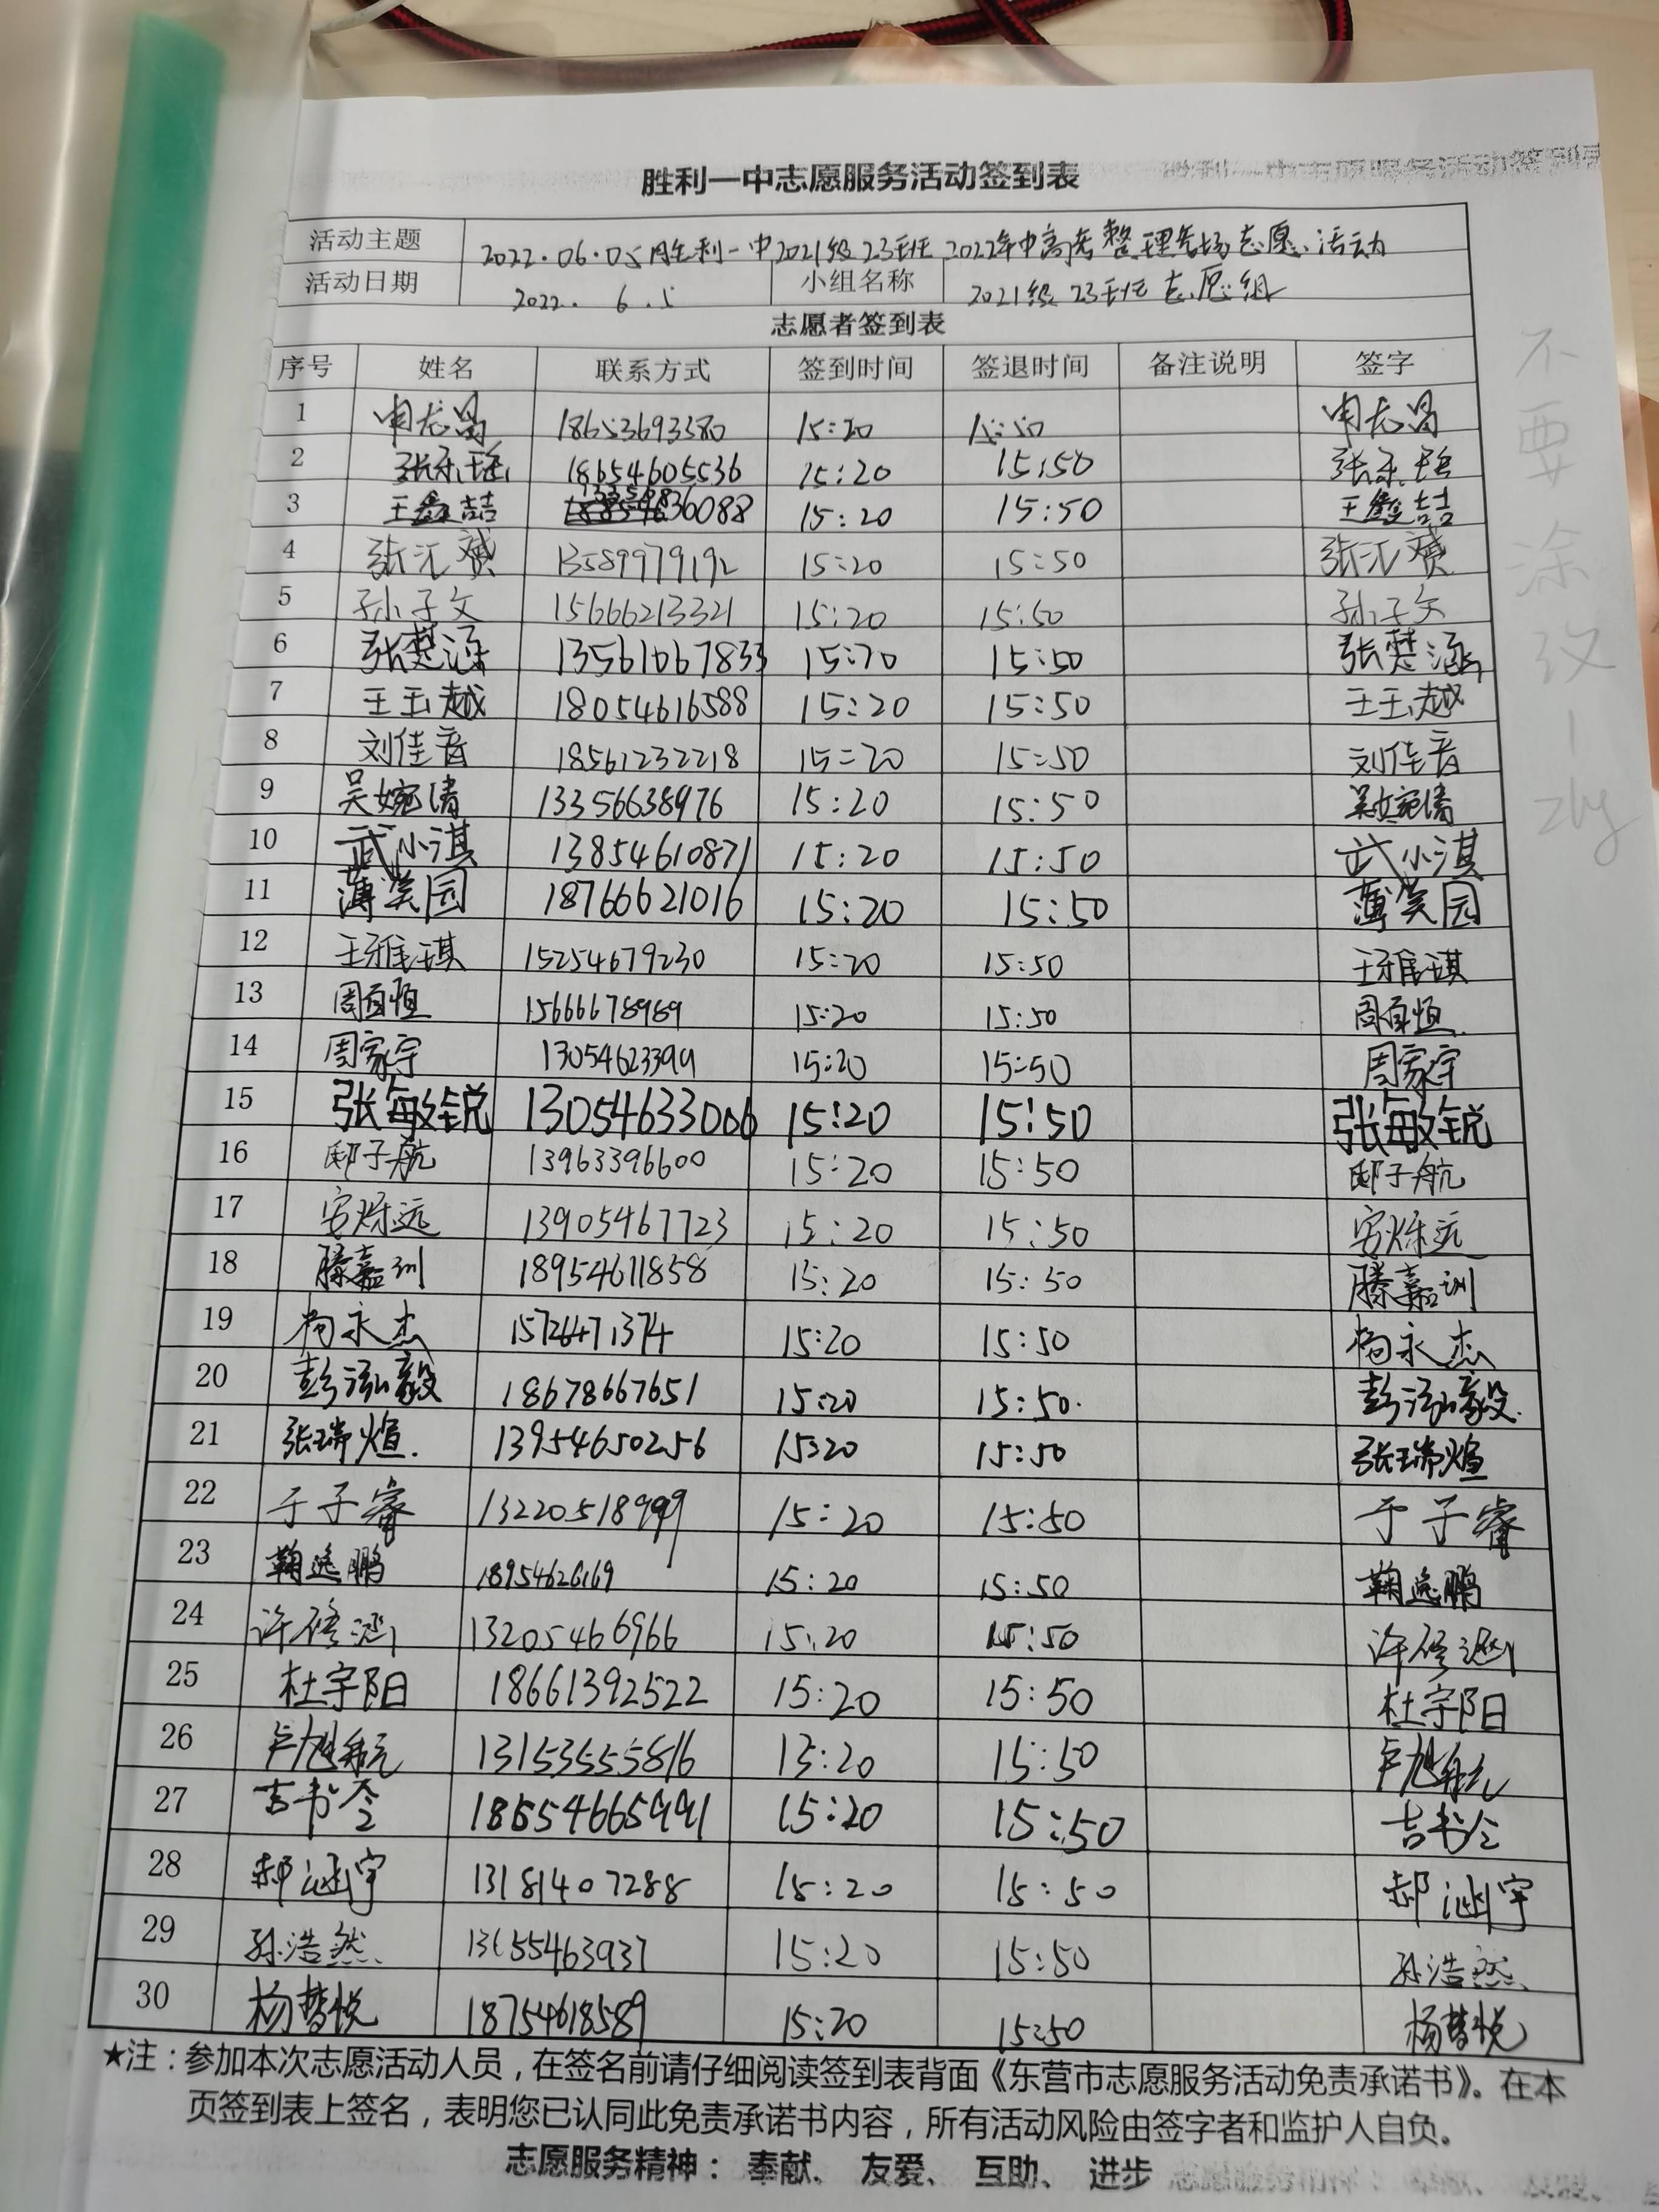 胜利一中志愿服务活动签到表
活动主题 2022.06.05胜利一中2021级23班2022年中高考整理考场志愿活动
活动日期 2022. 6. 5 小组名称 2021级23班志愿组
志愿者签到表
序号 姓名 联系方式 签到时间 签退时间 备注说明 签字
1 18653693380 15:20 15:50
2 18654605536 15:20 15:50
3 15:20 15:50
4 13589979192 15:20 15:50
5 孙子文 15666213321 15:20 15:50 孙子文
6 张楚涵 13561067833 15:20 15:50 张楚涵
7 王玉越 18054616588 15:20 15:50 王玉越
8 刘佳音 18561232218 15:20 15:50 刘佳音
9 吴婉倩 13356638976 15:20 15:50 吴婉倩
10 武小淇 13854610871 15:20 15:50 武小淇
11 薄笑园 18766621016 15:20 15:50 薄笑园
12 王雅琪 15254679230 15:20 15:50 王雅琪
13 周百恒 15666678989 15:20 15:50 周百恒
14 周家宇 13054623399 15:20 15:50 周家宇
15 张敏锐 13054633006 15:20 15:50 张敏锐
16 邸子航 13963396600 15:20 15:50 邸子航
17 安烁远 13905467723 15:20 15:50 安烁远
18 滕嘉训 18954611858 15:20 15:50 滕嘉训
19 杨永杰 15726471374 15:20 15:50 杨永杰
20 彭泓毅 18678667651 15:20 15:50. 彭泓毅.
21 张瑞煊. 13954650256 15:20 15:50 张瑞煊
22 于子睿 13220518999 15:20 15:50 于子睿
23 鞠逸鹏 15:20 15:50 鞠逸鹏
24 13205466966 15:20 15:50
25 杜宇阳 18661392522 15:20 15:50 杜宇阳
26 卢旭航 13153555816 15:20 15:50 卢旭航
27 吉书令 18554665991 15:20 15:50 吉书令
28 郝涵宇 13181407288 15:20 15:50 郝涵宇
29 孙浩然 13655463937 15:20 15:50 孙浩然
30 杨慧悦 18754618589 15:20 15:50 杨慧悦
★注：参加本次志愿活动人员，在签名前请仔细阅读签到表背面《东营市志愿服务活动免责承诺书》。在本
页签到表上签名，表明您已认同此免责承诺书内容，所有活动风险由签字者和监护人自负。
志愿服务精神： 奉献、 友爱、 互助、 进步
不要涂改！
zly